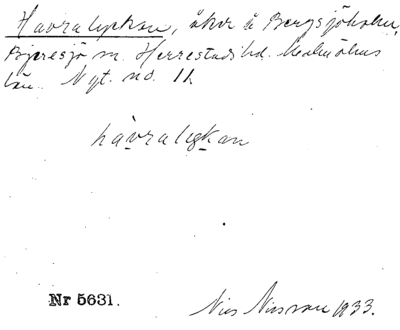 Havralyckan, åker å Bergsjöholm,
Bjeresjö sn. Herrestads hd. Malmöhus
län. Nyt. no. 11.
hàvralykan
Nr 5631.
Nils Nilsson 1933.